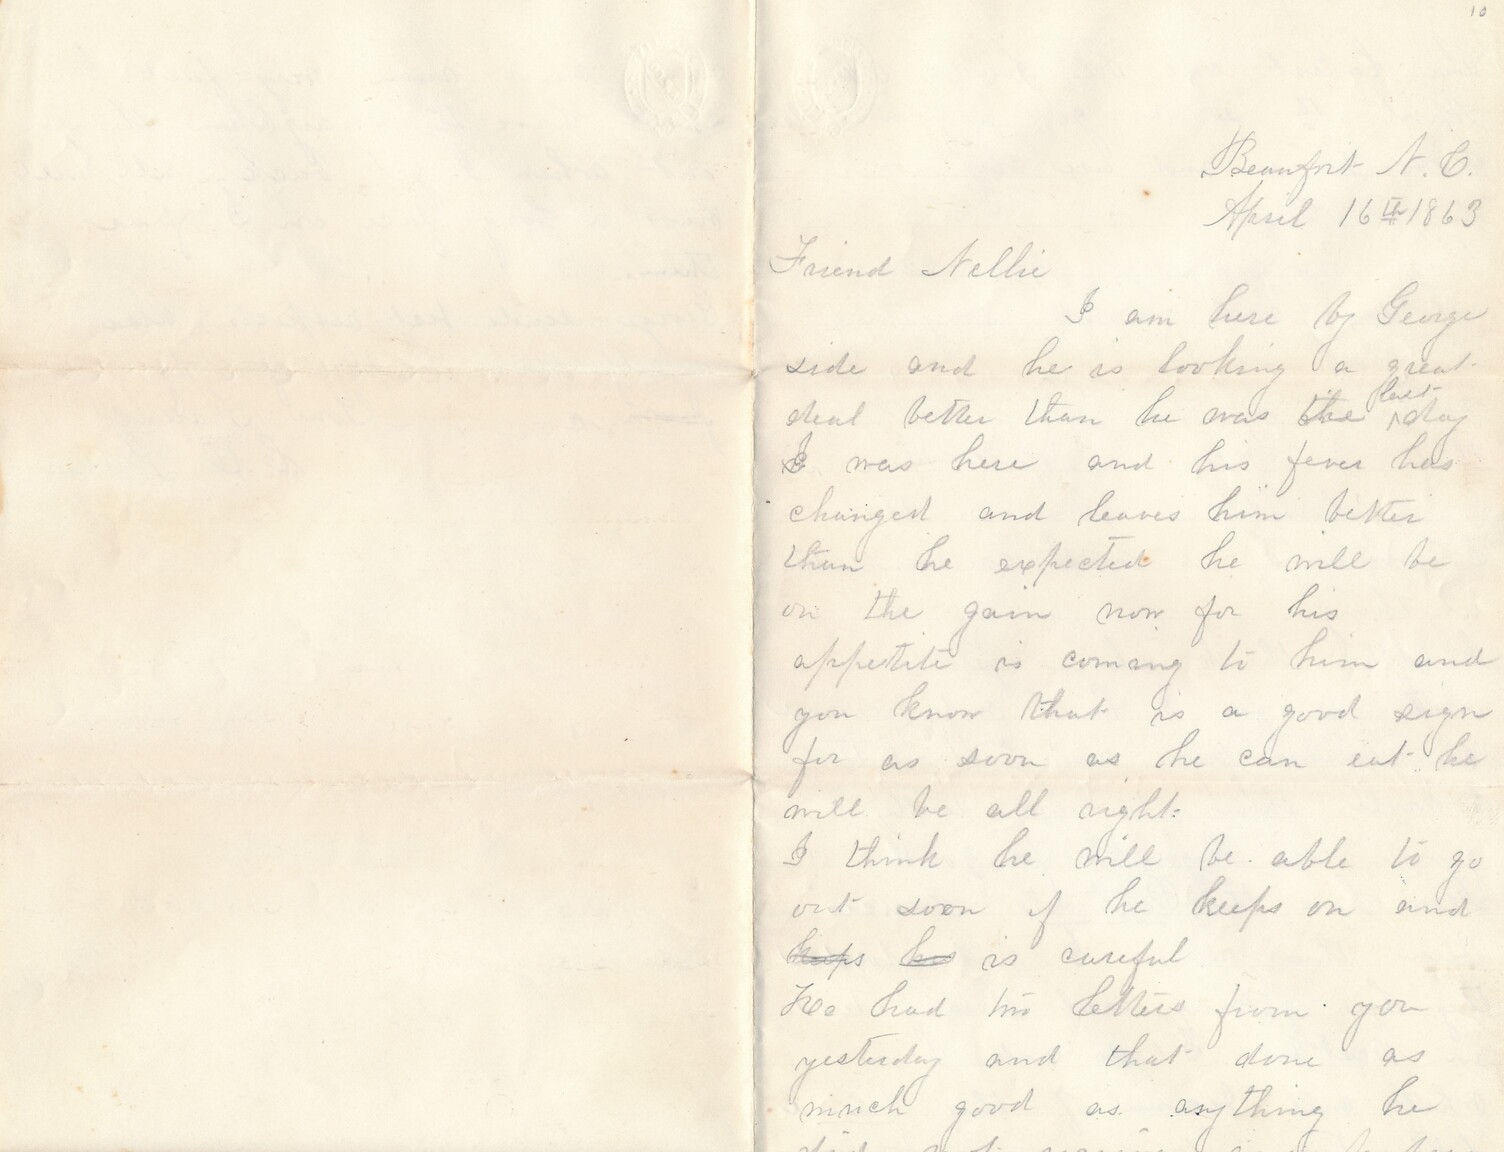 10
Beaufort N. C.
April 16th 1863
Friend Nellie
I am here by George
side and he is looking a great
deal better than he was the last day
I was here and his fever has
changed and leaves him better
than he expected he will be
on the gain now for his
appetite is coming to him and
you know that is a good sign
for as soon as he can eat he
will be all right.
I think he will be able to go
out soon if he keeps on and
keeps his is careful
He had two letters from you
yesterday and that done as
much good as anything he
did not